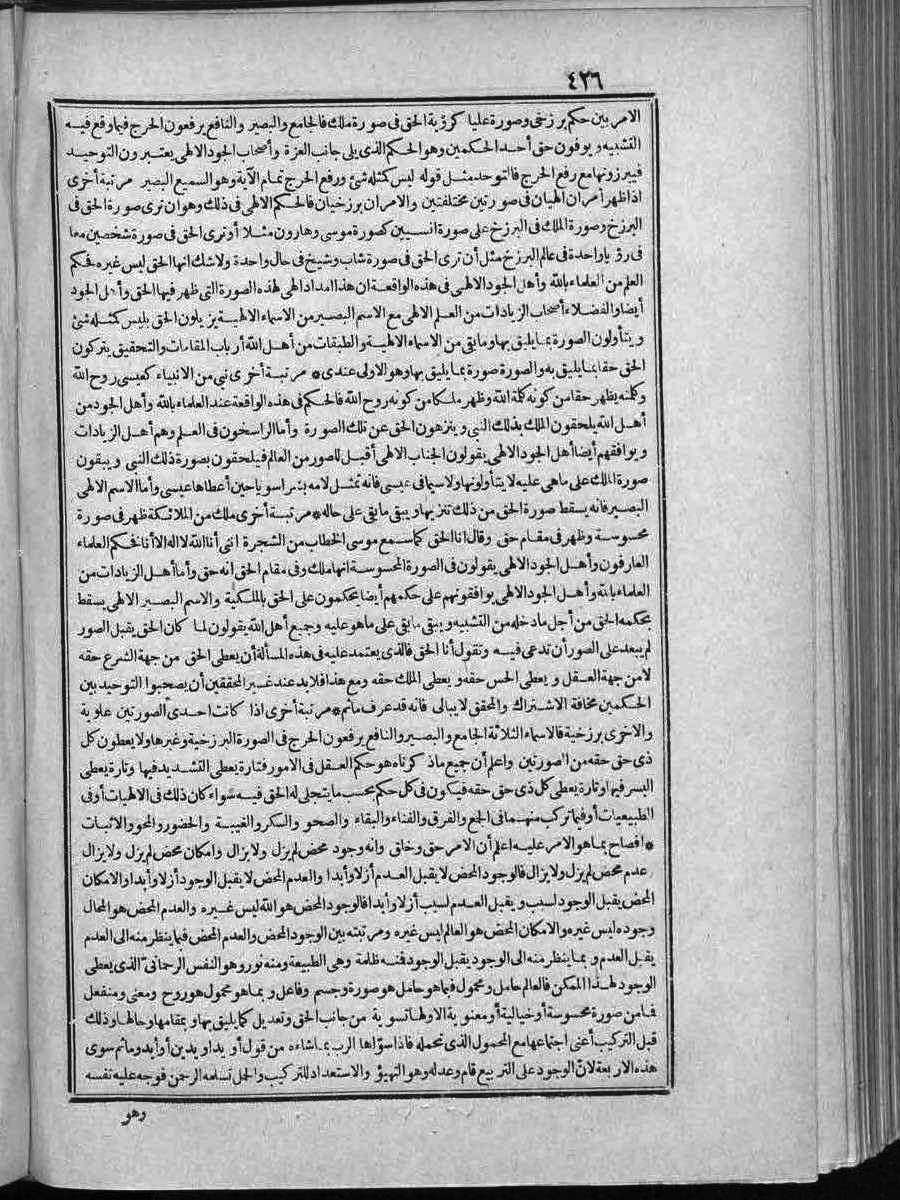 ٤٢٦
الامر بين حكم برزخى وصورة عليا كرؤية الحق فى صورة ملك فالجامع والبصير والنافع يرفعون الحرج فيما وقع فيه
التشبيه ويوفون حق أحد الحكمين وهو الحكم الذى يلى جانب العزة وأصحاب الجود الالهى يعتبرون التوحيد
فيبرزونها مع رفع الحرج فالتوحد مثل قوله ليس كمثله شئ ورفع الحرج تمام الآية وهو السميع البصير مرتبة أخرى
اذا ظهر أمران الهيان فى صورتين مختلفتين والامران برزخيان فالحكم الالهى فى ذلك وهو ان ترى صورة الحق فى
البرزخ وصورة الملك فى البرزخ على صورة انسيين كصورة موسى وهارون مثلا أو ترى الحق فى صورة شخصين معا
فى رؤيا واحدة فى عالم البرزخ مثل أن ترى الحق فى صورة شاب وشيخ فى حال واحدة ولا شك انها الحق ليس غيره فحكم
العلم من العلماء بالله وأهل الجود الالهى فى هذه الواقعة ان هذا امداد الهى لهذه الصورة التى ظهر فيها الحق وأهل الجود
أيضا والفضلاء أصحاب الزيادات من العلم الالهى مع الاسم البصير من الاسماء الالهية يزيلون الحق بليس كمثله شئ
ويتأولون الصورة بما يليق بها وما بقى من الاسماء الالهية والطبقات من أهل الله أرباب المقامات والتحقيق يتركون
الحق حقا بما يليق به والصورة صورة بما يليق بها وهو الاولى عندى * مرتبة أخرى نبى من الانبياء كعيسى روح الله
وكلمته يظهر حقا من كونه كلمة الله وظهر ملكا من كونه روح الله فالحكم فى هذه الواقعة عند العلماء بالله وأهل الجود من
أهل الله يلحقون الملك بذلك النبى وينزهون الحق عن تلك الصورة وأما الراسخون فى العلم وهم أهل الزيادات
ويوافقهم أيضا أهل الجود الالهى يقولون الجناب الالهى أقبل للصور من العالم فيلحقون بصورة ذلك النبى ويبقون
صورة الملك على ماهى عليه لا يتأولونها ولا سيما فى عيسى فانه تمثل لامه بشراسويا حين أعطاها عيسى وأما الاسم الالهى
البصير فانه يسقط صورة الحق من ذلك تنزيها ويبقى ما بقى على حاله * مرتبة أخرى ملك من الملائكة ظهر فى صورة
محسوسة وظهر فى مقام حق وقال انا الحق كما سمع موسى الخطاب من الشجرة اننى أنا الله لا اله الا أنا فحكم العلماء
العارفون وأهل الجود الالهى يقولون فى الصورة المحسوسة انها ملك وفى مقام الحق انه حق وأما أهل الزيادات من
العلماء بالله وأهل الجود الالهى يوافقونهم على حكمهم أيضا يحكمون على الحق بالملكية والاسم البصير الالهى يسقط
بحكمه الحق من أجل ما دخله من التشبيه ويبقى ما بقى على ما هو عليه وجميع أهل الله يقولون لما كان الحق يقبل الصور
لم يبعد على الصور أن تدعى فيه وتقول أنا الحق فالذى يعتمد عليه فى هذه المسألة أن يعطى الحق من جهة الشرع حقه
لا من جهة العقل ويعطى الحس حقه ويعطى الملك حقه ومع هذا فلا بد عند غير المحققين أن يصحبوا التوحيد بين
الحكمين مخافة الاشتراك والمحقق لا يبالى فانه قد عرف ماثم * مرتبة أخرى اذا كانت احدى الصورتين علوية
والاخرى برزخية فالاسماء الثلاثة الجامع والبصير والنافع يرفعون الحرج فى الصورة البرزخية وغيرها ولا يعطون كل
ذى حق حقه من الصورتين واعلم أن جميع ما ذكرناه هو حكم العقل فى الامور فتارة يعطى التشديد فيها وتارة يعطى
اليسر فيها وتارة يعطى كل ذى حق حقه فيكون فى كل حكم بحسب ما يتجلى له الحق فيه سواء كان ذلك فى الالهيات أوفى
الطبيعيات أو فيما تركب منهما فى الجع والفرق والفناء والبقاء والصحو والسكر والغيبة والحضور والمحو والاثبات
* افصاح بما هو الامر عليه اعلم أن الامر حق وخلق وانه وجود محض لم يزل ولا يزال وامكان محض لم يزل ولا يزال
عدم محض لم يزل ولا يزال فالوجود المحض لا يقبل العدم أزلا وأبدا والعدم المحض لا يقبل الوجود أزلا وأبدا والامكان
المحض يقبل الوجود لسبب ويقبل العدم لسبب أزلا وأبدا فالوجود المحض هو الله ليس غيره والعدم المحض هو المحال
وجوده ليس غيره والامكان المحض هو العالم ليس غيره ومرتبته بين الوجود المحض والعدم المحض فيما ينظر منه الى العدم
يقبل العدم وبما ينظر منه الى الوجود يقبل الوجود فمنه ظلمة وهى الطبيعة ومنه نور وهو النفس الرحمانى الذى يعطى
الوجود لهذا الممكن فالعالم حامل ومحمول فبما هو حامل هو صورة وجسم وفاعل وبما هو محمول هو روح ومعنى ومنفعل
فما من صورة محسوسة أو خيالية أو معنوية الاولها تسوية من جانب الحق وتعديل كما يليق بها وبمقامها وحالها وذلك
قبل التركيب أعنى اجتماعها مع المحمول الذى تحمله فاذا سوّاها الرب بما شاءه من قول أو يد أو يدين أو أيد وماثم سوى
هذه الاربعة لانّ الوجود على التربيع قام وعدله وهو التهيؤ والاستعداد للتركيب والحل تسلمه الرحمن فوجه عليه نفسه
وهو